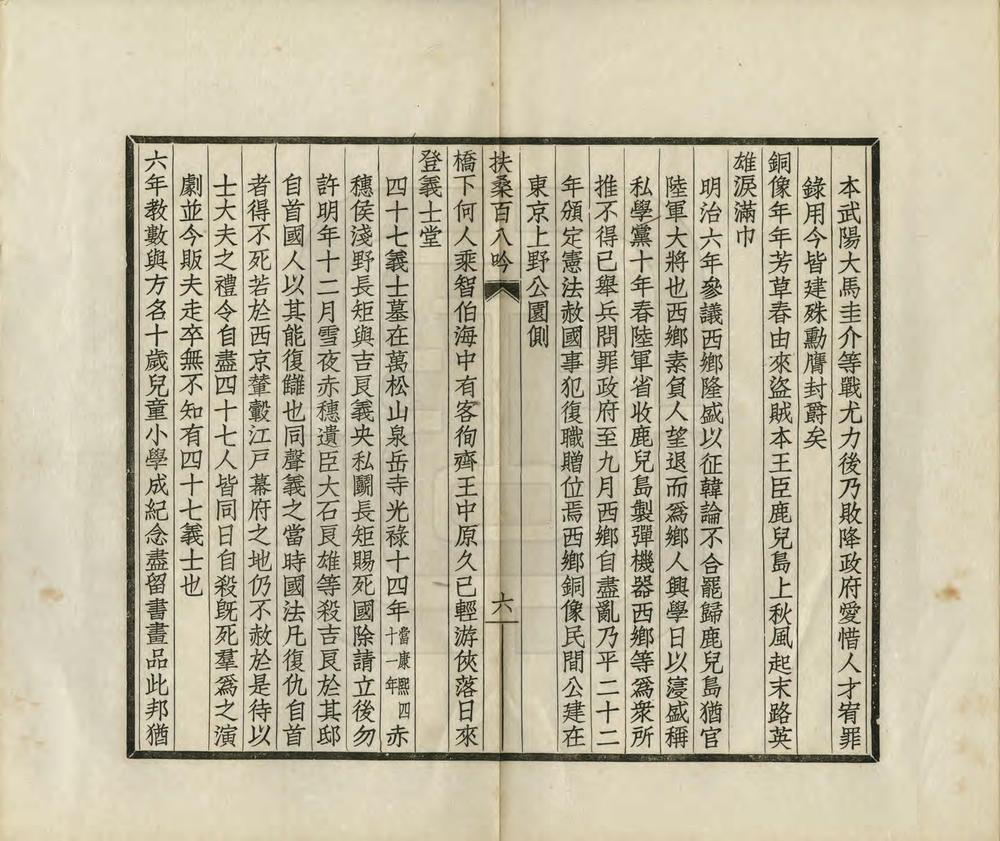 本武陽大馬圭介等戰尤力後乃敗降政府愛惜人才宥罪
錄用今皆建殊勳膺封爵矣
銅像年年芳草春由來盜賊本王臣鹿兒島上秋風起末路英
雄淚滿巾
明治六年參議西鄉隆盛以征韓論不合罷歸鹿兒島猶官
陸軍大將也西鄉素負人望退而爲鄉人興學日以寖盛稱
私學黨十年春陸軍省收鹿兒島製彈機器西鄉等爲衆所
推不得已舉兵問罪政府至九月西鄉自盡亂乃平二十二
年頒定憲法赦國事犯復職贈位焉西鄉銅像民間公建在
東京上野公園側
扶桑百八吟
六
橋下何人乘智伯海中有客徇齊王中原久已輕游俠落日來
登義士堂
四十七義士墓在萬松山泉岳寺光祿十四年當康熙四十一年赤
穗侯淺野長矩與吉良義央私鬬長矩賜死國除請立後勿
許明年十二月雪夜赤穗遺臣大石良雄等殺吉良於其邸
自首國人以其能復讎也同聲義之當時國法凡復仇自首
者得不死若於西京輦轂江戶幕府之地仍不赦於是待以
士大夫之禮令自盡四十七人皆同日自殺旣死羣爲之演
劇並今販夫走卒無不知有四十七義士也
六年教數與方名十歲兒童小學成紀念盡留書畫品此邦猶